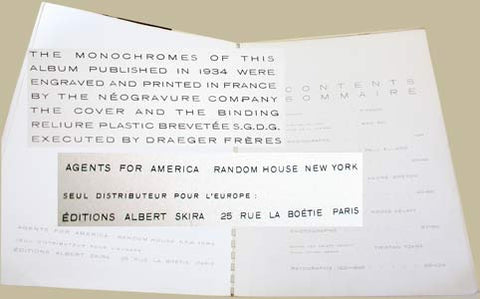 THE MONOCHROMES OF THIS
ALBUM PUBLISHED IN 1934 WERE
ENGRAVED AND PRINTED IN FRANCE
BY THE NÉOGRAVURE COMPANY
THE COVER AND THE BINDING
RELIURE PLASTIC BREVETÉE S.G.D.G.
EXECUTED BY DRAEGER FRÈRES
AGENTS FOR AMERICA RANDOM HOUSE NEW YORK
SEUL DISTRIBUTEUR POUR L'EUROPE :
ÉDITIONS ALBERT SKIRA 25 RUE LA BOÉTIE PARIS
AGENTS FOR AMERICA RANDOM HOUSE NEW YORK
SEUL DISTRIBUTEUR POUR L'EUROPE :
ÉDITIONS ALBERT SKIRA 25 RUE LA BOÉTIE PARIS
CONTENTS
SOMMAIRE
PAUL ELUARD
ANDRÉ BRETON
TRISTAN TZARA